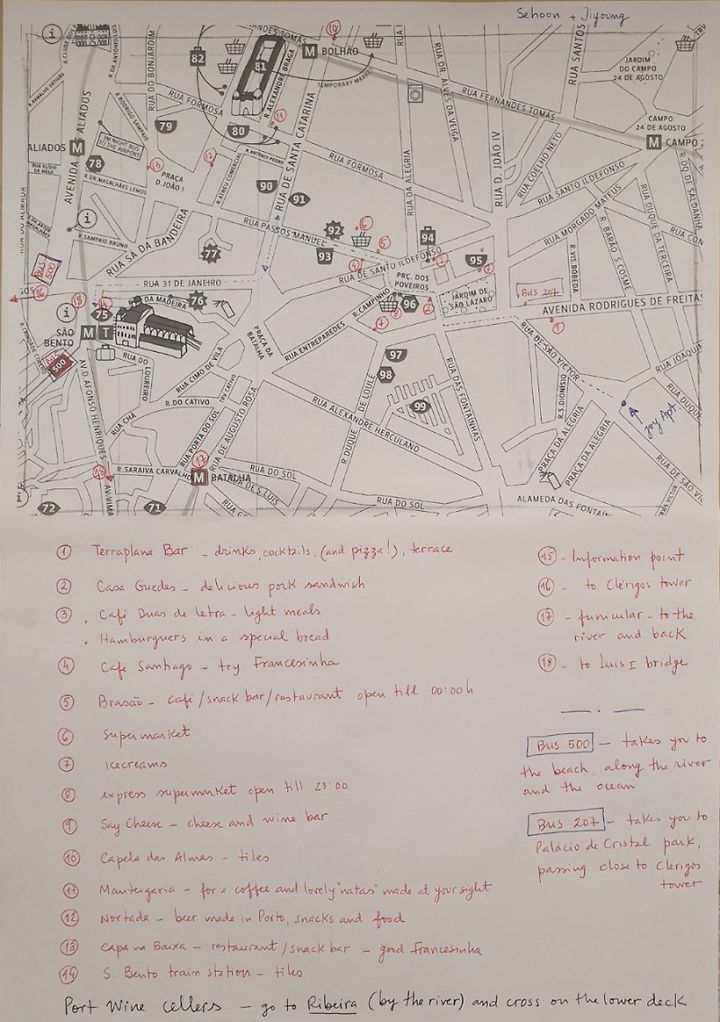 Sehoon + Jiyoung
BOLHÃO
TEMPORARY MARKET
82
81
80
79
78
R. ALEXANDRE BRAGA
RUA DO BONJARDIM
RUA FORMOSA
RUA DE SANTA CATARINA
RUA FERNANDES TOMÁS
RUA DR. ALVES DA VEIGA
RUA SANTOS
JARDIM
DO CAMPO
24 DE AGOSTO
CAMPO
24 DE AGOSTO
M CAMPO
ALIADOS M
AVENIDA ALIADOS
R. RODRIGO SAMPAIO
PRAÇA
D. JOÃO I
R. DR. MAGALHÃES LEMOS
RUA FORMOSA
RUA DA ALEGRIA
RUA D. JOÃO IV
RUA COELHO NETO
RUA SANTO ILDEFONSO
RUA MORGADO MATEUS
R. DQ. DE SALDANHA
RUA DUQUE DA TERCEIRA
R. BARÃO S. COSME
R. VIS. BOBEDA
90
91
92
93
94
95
96
97
98
99
77
76
75
72
71
R. SAMPAIO BRUNO
RUA SÁ DA BANDEIRA
RUA PASSOS MANUEL
RUA DE SANTO ILDEFONSO
PRÇ. DOS
POVEIROS
JARDIM DE
SÃO LÁZARO
BUS 207
AVENIDA RODRIGUES DE FREITAS
BUS
500
RUA 31 DE JANEIRO
R. DA MADEIRA
SÃO
BENTO
M T
R. CAMPINHO
RUA ENTREPAREDES
PRAÇA DA
BATALHA
RUA DE SÃO VICTOR
RUA JOAQUIM
RUA DO
LOUREIRO
RUA CIMO DE VILA
R. DO CATIVO
TRV. CATIVO
AV. D. AFONSO HENRIQUES
RUA CHÃ
RUA PORTA DO SOL
RUA DE AUGUSTO ROSA
R. DUQUE DE LOULÉ
RUA ALEXANDRE HERCULANO
RUA DAS FONTAINHAS
R. S. DIONÍSIO
PRAÇA DA ALEGRIA
R. SARAIVA CARVALHO
M BATALHA
RUA DO SOL
RUA DO SOL
ALAMEDA DAS FONTAÍN
1 Terraplana Bar - drinks, cocktails, (and pizza!), terrace
2 Casa Guedes - delicious pork sandwish
3 . Café Duas de letra - light meals
. Hamburguers in a special bread
4 Café Santiago - try Francesinha
5 Brasão - café/snack bar/restaurant open till 00:00h
6 Supermarket
7 icecreams
8 express supermarket open till 23:00
9 Say Cheese - cheese and wine bar
10 Capela das Almas - tiles
11 Manteigaria - for a coffee and lovely "natas" made at your sight
12 Nortada - beer made in Porto, snacks and food
13 Capa na Baixa - restaurant/snack bar - good Francesinha
14 S. Bento train station - tiles
15 - Information point
16 - to Clérigos tower
17 - funicular - to the
river and back
18 - to Luis I bridge
Bus 500 - takes you to
the beach, along the river
and the ocean
Bus 207 - takes you to
Palácio de Cristal park,
passing close to Clérigos
tower
Port Wine cellers - go to Ribeira (by the river) and cross on the lower deck